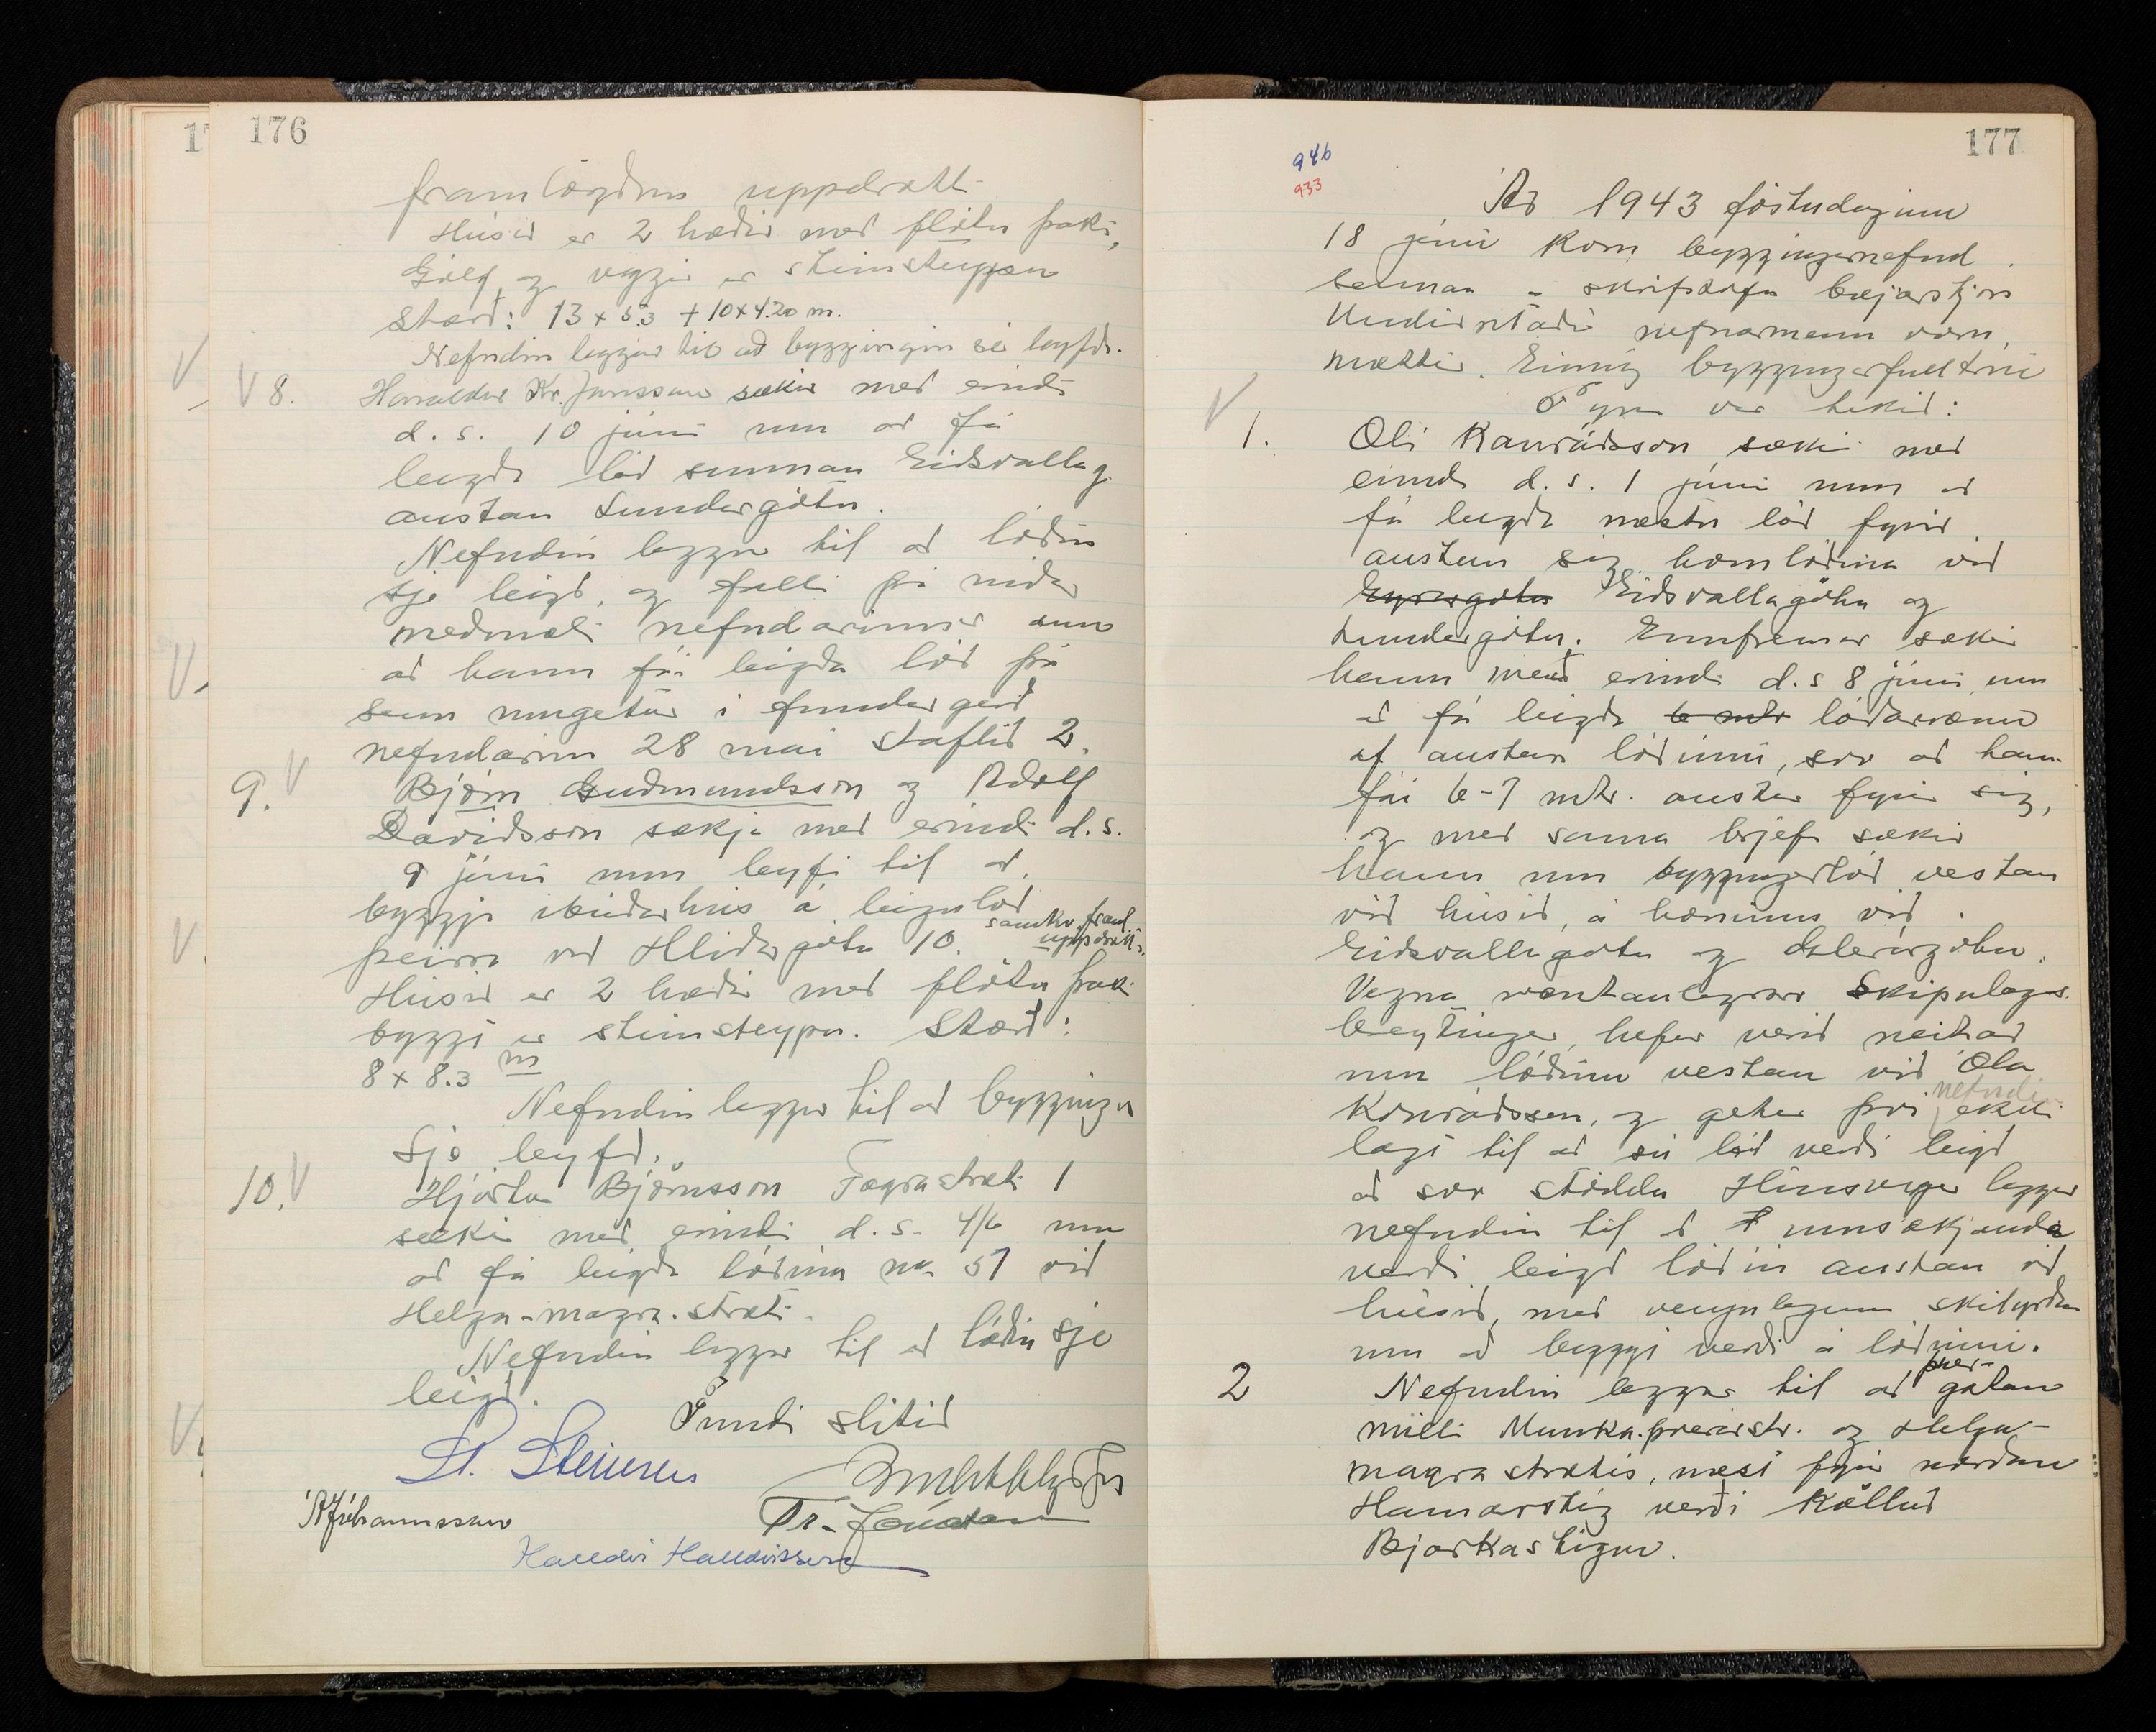 176
framlögðum uppdrætti
Húsið er 2 hæðir með flötu þaki,
Gólf og veggir er steinsteypa
Stærð: 13 x 5.3 + 10 x 4.20 m.
Nefndin leggur til að byggingin sé leyfð.
V 8. Haraldur Kr. Jónsson sækir með erindi
d. s. 10 júní um að fá
leigða lóð sunnan Eiðsvallag
austan Lundargötu.
Nefndin leggur til að lóðin
sje leigð, og falli þá niður
meðmæli nefndarinnar um
að hann fái leigða lóð þá
sem umgetur í fundargerð
nefndarinn 28 mai staflið 2.
9. V Björn Guðmundsson og Adolf
Davíðsson sækja með erindi d. s.
9 júní um leyfi til að
byggja íbúðarhús á leigulóð
þeirra við Hlíðargötu 10. samkv. framl. uppdrætti.
Húsið er 2 hæðir með flötu þaki
byggt er steinsteypu. Stærð:
8 x 8.3 m
Nefndin leggur til að bygginga
sje leyfð.
10. V Hjörtur Björnsson Fagrastræti 1
sækir með erindi d. s. 4/6 um
að fá leigða lóðina no 51 við
Helga-magra-stræti.
Nefndin leggur til að lóðin sje
leigð.
Fundi slitið
St. Steinsen
AJóhannsson
Tr. Jónatan
Halldór Halldórsson
177
946
933
Ár 1943 föstudaginn
18 júní kom byggingarnefnd
saman á skrifstofu bæjarstjóra
Undirritaðir nefnarmenn voru
mættir. Einnig byggingarfulltrúi
Fyrir var tekið:
V 1. Óli Konráðsson sækir með
erindi d. s. 1 júní um að
fá leigða næstu lóð fyrir
austan sig hornlóðina við
Eyrargötu Eiðsvallagötu og
Lundargötu. Ennfremur sækir
hann með erindi d. s 8 júní, um
að fá leigða 6 mtr lóðarræmu
af austari lóðinni, svo að hann
fái 6-7 mtr. austur fyrir sig,
og með sama brjefi sækir
hann um byggingarlóð vestan
við húsið á horninu við
Eiðsvallagötu og Glerárgötu.
Vegna væntanlegrar Skipulags-
breytingar, hefur verið neitað
um lóðina vestan við Óla
Konráðsson, og getur því nefndin ekki
lagt til að sú lóð verði leigð
að svo stöddu Hinsvegar leggur
nefndin til að umsækjanda
verði leigð lóðin austan við
húsið, með venjulegum skilyrðum
um að byggt verði á lóðinni.
2 Nefndin leggur til að þver-gatan
milli Munka-þverárstr. og Helga-
magra strætis, næst fyrir norðan
Hamarstíg verði kölluð
Bjarkastígur.